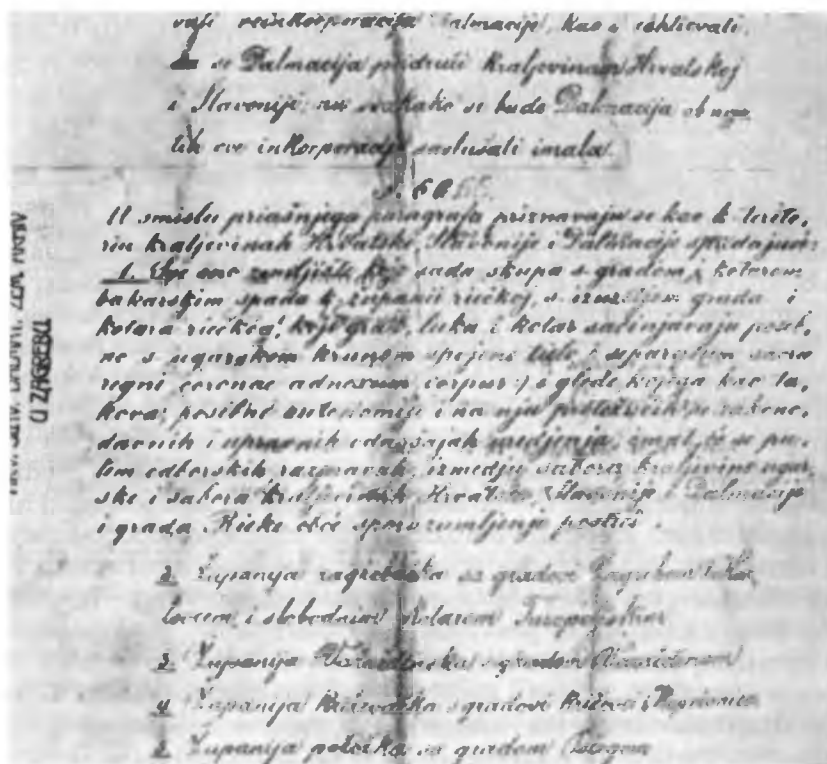 vaši reinkorporacija Dalmacije, kao i
da se Dalmacija pridruži Kraljevinam Hrvatskoj
i Slavoniji; nu svakako se bude Dalmacija ob
tih ove inkorporacije saslušati imala.
U smislu priašnjega paragrafa priznavaju se kao k terito,
riu Kraljevinah Hrvatske, Slavonije i Dalmacije spadajuće:
1. zemljište koje sada skupa s gradom i kotarom
bakarskim spada k županii riečkoj, s izuzetjem grada i
kotara riečkog, koji grad, luka i kotar sačinjavaju poseb,
no s ugarskom krunom spojeno tielo (separatum sacrae
regni coronae adnexum corpus) i glede kojega kao ta,
kova, posebne autonomije i na nju protežućih se zakono,
davnih i upravnih odnošajah uredjenja, imat će se pu,
tem odborskih razpravah, izmedju sabora kraljevine ugar
ske i sabora kraljevinah Hrvatske, Slavonije i Dalmacije
i grada Rieke obće sporazumljenje postići.
2. Županija zagrebačka sa gradovi Zagrebom i Kar
lovcem i slobodnim kotarom Turopoljskim
3. Županija Varaždinska s gradom Varaždinom
4. Županija Križevačka s gradovi Križevci i Koprivnica
5. Županija požežka sa gradom Požegom
U ZAGREBU